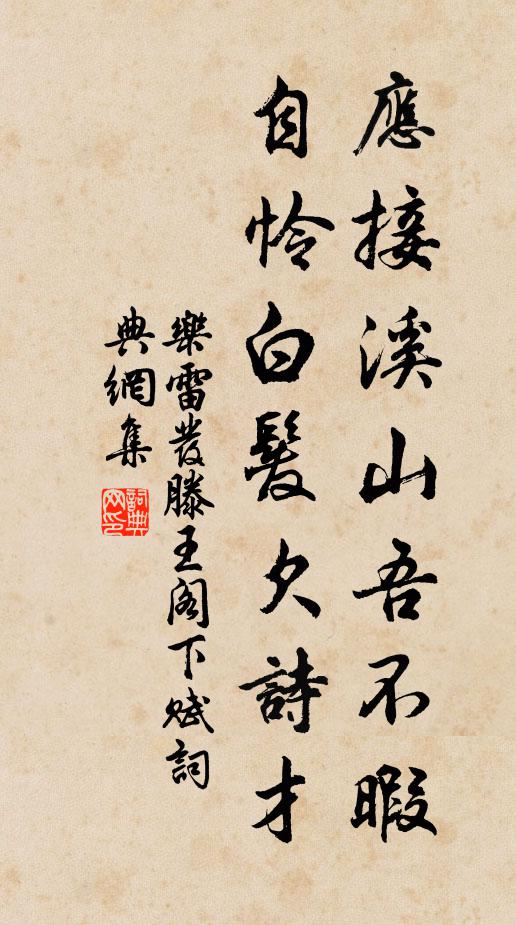 應接溪山吾不暇
自怜白髮欠詩才
樂雷發滕王阁下赋詞
典網集
詞典網印